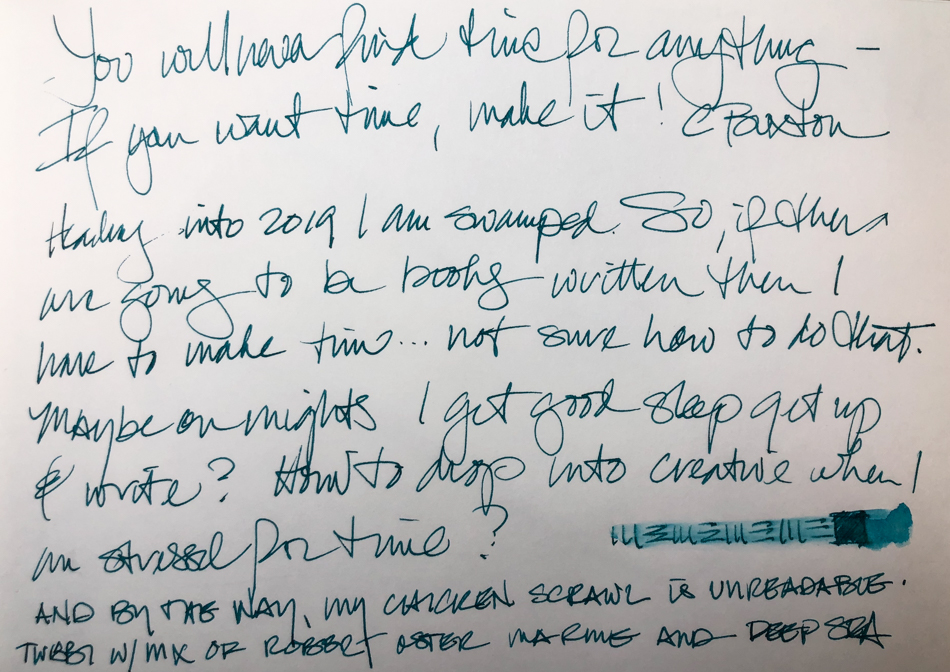 You will never find time for anything –
If you want time, make it! C Buxton
Heading into 2019 I am swamped. So, if there
are going to be books written then I
have to make time... not sure how to do that.
Maybe on nights I get good sleep get up
& write? How to drop into creative when I
am stressed for time?
AND BY THE WAY, MY CHICKEN SCRAWL IS UNREADABLE.
TWSBI W/ MIX OF ROBERT OSTER MARINE AND DEEP SEA